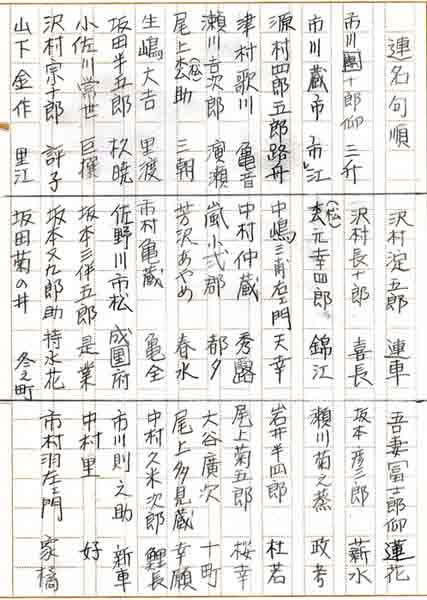 連名句順
市川團十郎仰 三升
市川蔵市 市江
源村四郎五郎 路舟
津村歌川 亀音
瀬川吉次郎 濱瀬
尾上枩(松)助 三朝
生嶋大吉 里渡
坂田半五郎 杉暁
小佐川常世 巨撰
沢村宗十郎 訥子
山下金作 里江
沢村淀五郎 連車
沢村長十郎 喜長
枩(松)元幸四郎 錦江
中嶋三甫左ェ門 天幸
中村仲蔵 秀露
嵐小弐郡 都夕
芳沢あやめ 春水
市村亀蔵 亀全
佐野川市松 成圍府
坂本三津五郎 是業
坂本又九郎助 持水花
坂田菊の井 冬之町
吾妻冨士郎仰 蓮花
坂本彦三郎 薪水
瀬川菊之蒸 政考
岩井半四郎 杜若
尾上菊五郎 桜幸
大谷廣次 十町
尾上多見蔵 幸願
中村久米次郎 鯉長
市川則之助 新車
中村里 好
市村羽左ェ門 家橘